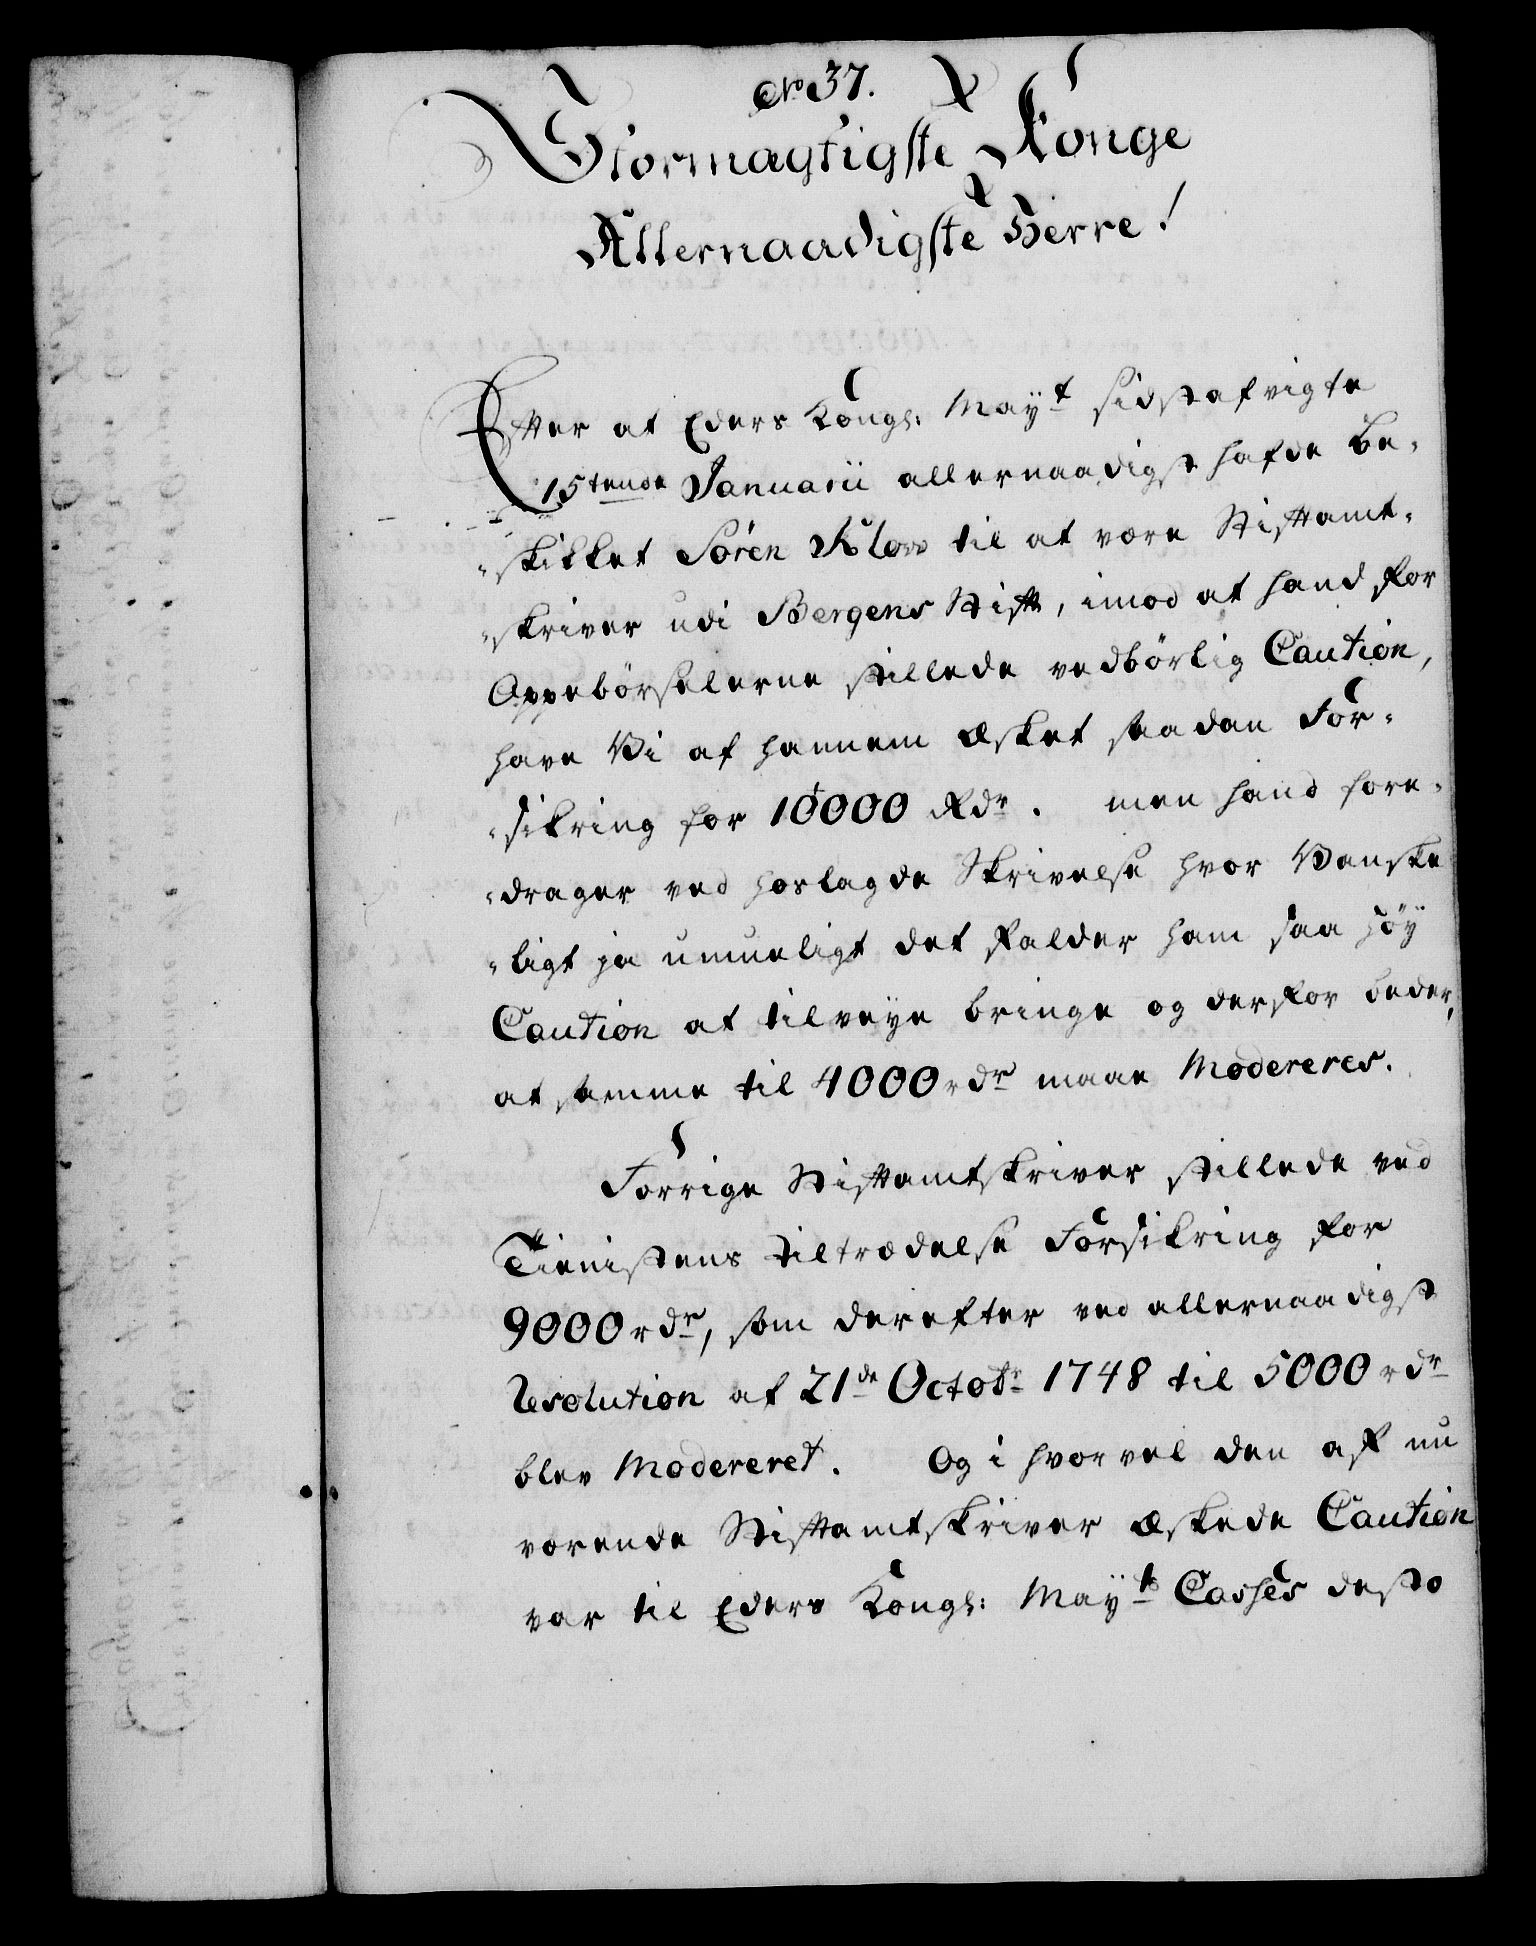 No 37.
Stormægtigste Konge
Allernaadigste Herre!
Efter at Eders Kongl: May.t sidst afvigte
15tende Januarii allernaadigst hafde be-
-skikket Sören Kløve til at være Stiftamt-
-skriver udi Bergens Stift, imod at hand for
Oppebörselerne stillede vedbörlig Caution,
have Vi af hannem æsket saadan For-
-sikring for 10000 Rdr. men hand fore-
-drager ved hoslagde Skrivelse hvor Vanske
-ligt ja umueligt det falder ham saa höy
Caution at tilveye bringe og derfor beder,
at samme til 4000 rdr maae Modereres.
Forrige Stiftamtskriver stillede ved
Tienistens tiltrædelse Forsikring for
9000 rdr, som derefter ved allernaadigst
Resolution af 21de Octobr 1748 til 5000 rdr
blev Modereret. Og i hvorvel den af nu
værende Stiftamtskriver æskede Caution
var til Eders Kongl: May.ts Casses desto